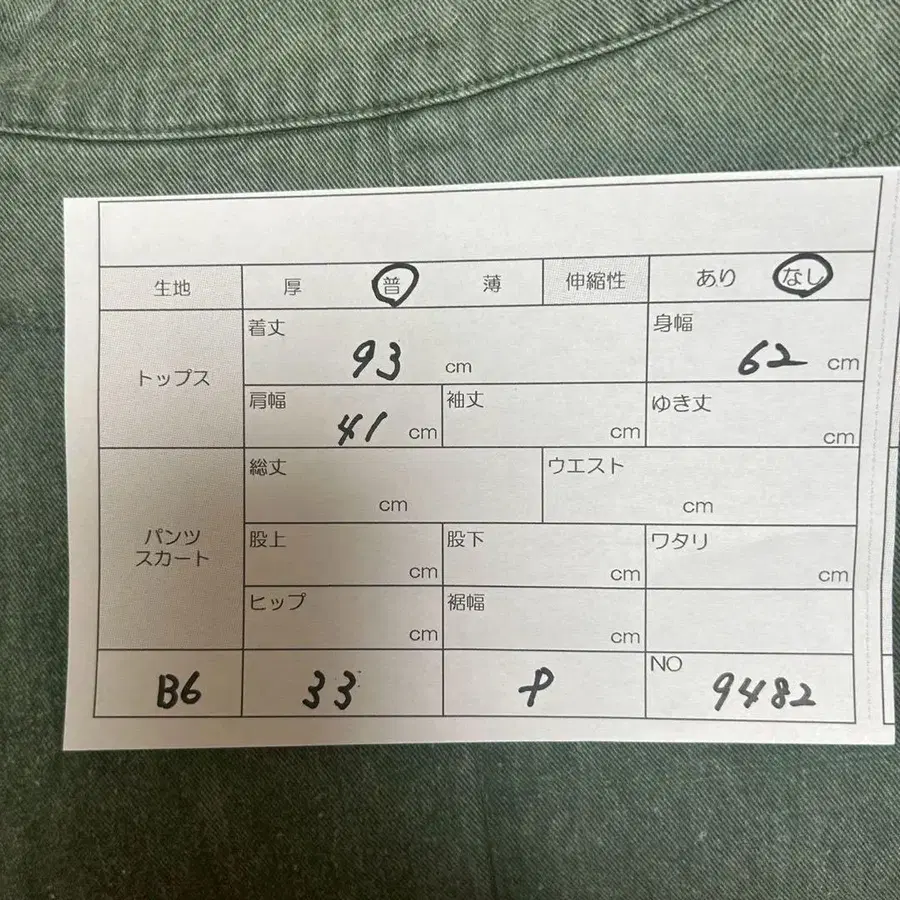 生地 厚 普 薄 伸縮性 あり なし
トップス
着丈 93 cm 身幅 62 cm
肩幅 41 cm 袖丈 cm ゆき丈 cm
パンツ
スカート
総丈 cm ウエスト cm
股上 cm 股下 cm ワタリ cm
ヒップ cm 裾幅 cm
B6 33 P NO 9482